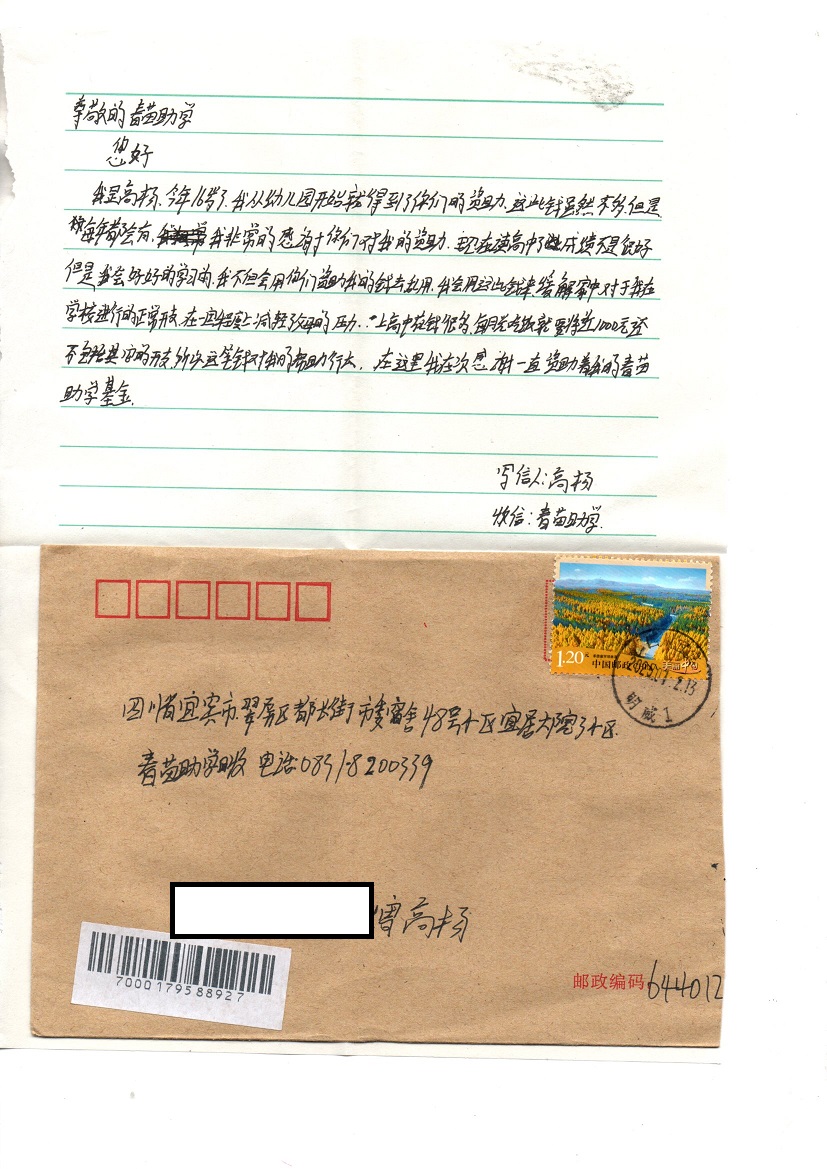 尊敬的春苗助学
您好
我是高杨,今年16岁了,我从幼儿园开始就得到了你们的资助,这些钱虽然不多,但是
每年都会有,我非常的感谢你们对我的资助,现在读高中了成绩不是很好
但是我会好好的学习的,我不但会用你们资助我的钱去乱用,我会用这些钱来缓解家中对于我在
学校进行的正常开支,在一定程度上减轻父母的压力,上高中花钱很多,每月吃饭就要将近1000元还
不包括其它的开支,所以这笔钱对我的帮助很大,在这里我在次感谢一直资助着我的春苗
助学基金.
写信人:高杨
收信:春苗助学
1.20元
中国邮政
美丽中国
2.13
明威1
四川省宜宾市翠屏区都长街市委宿舍48号小区宜居大院小区
春苗助学收 电话:0831-8200339
曾高杨
7000179588927
邮政编码 644012